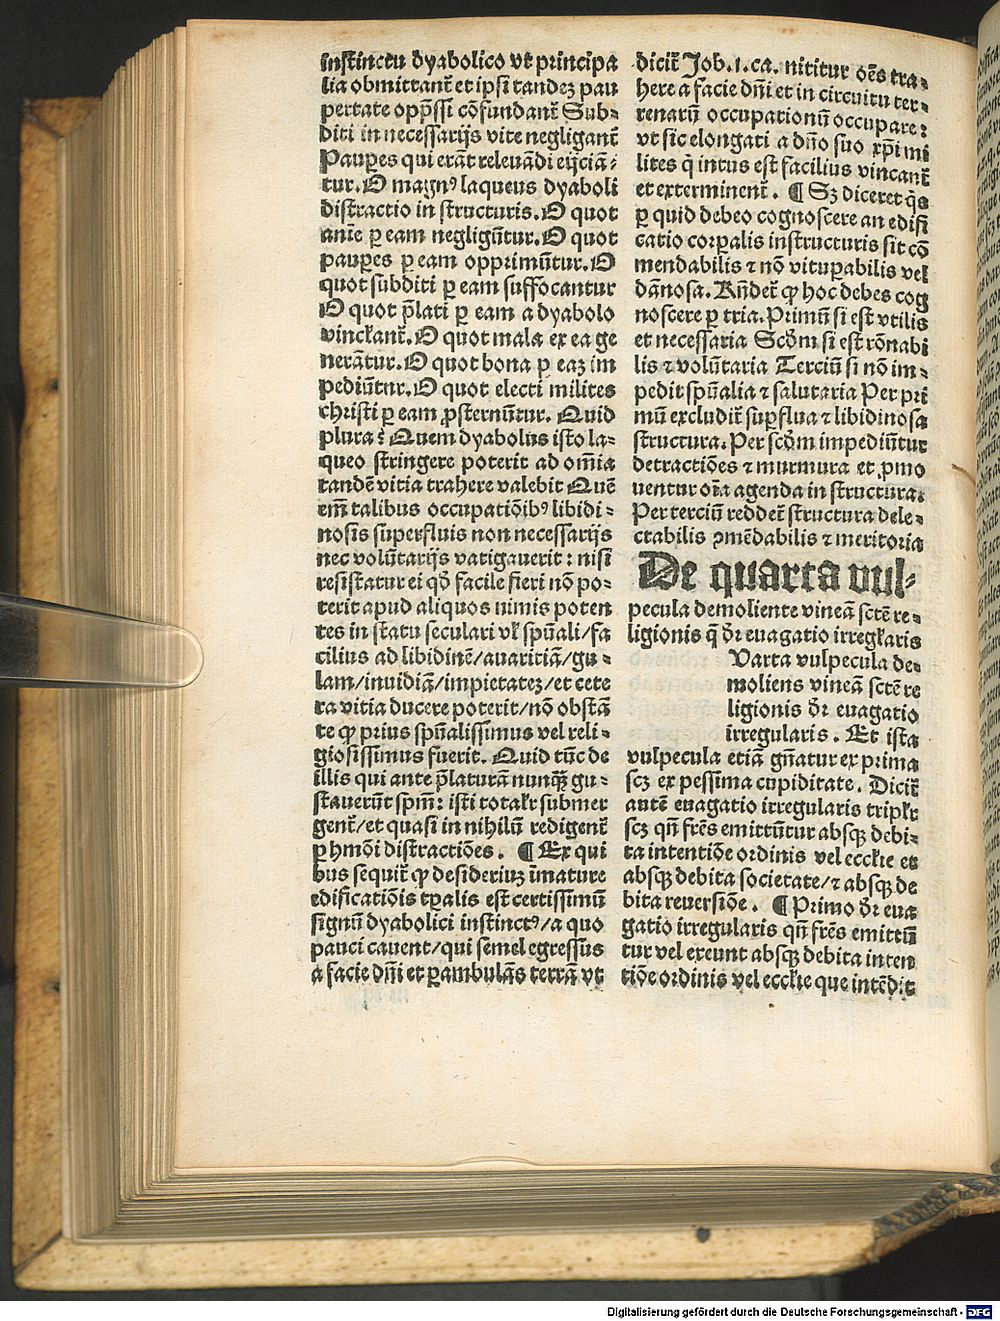 instinctu dyabolico vt principa
lia obmittant᷑ et ipsi tandeꝫ pau
pertate opp̄ssi cōfundant᷑ Sub⸗
diti in necessarijs vite negligant᷑
Pauꝑes qui erāt releuādi eijciā⸗
tur. O magnꝰ laqueus dyaboli
distractio in structuris. O quot
anīe ꝑ eam negligūtur. O quot
pauꝑes ꝑ eam opprimūtur. O
quot subditi ꝑ eam suffocantur
O quot p̄lati ꝑ eam a dyabolo
vinckant᷑. O quot mala ex ea ge
nerātur. O quot bona ꝑ eaꝫ im
pediūtur. O quot electi milites
christi ꝑ eam ꝓsternūtur. Quid
plura? Quem dyabolus isto la⸗
queo stringere poterit ad om̄ia
tandē vitia trahere valebit Quē
em̄ talibus occupatiōibꝰ libidi⸗
nosis superfluis non necessarijs
nec volūtarijs vatigauerit: nisi
resistatur ei qđ facile fieri nō po⸗
terit apud aliquos nimis poten
tes in statu seculari vł spūali/fa
cilius ad libidinē/auaritiā/gu⸗
lam/inuidiā/impietateꝫ/et cete
ra vitia ducere poterit/nō obstā
te ꝙ prius spūalissimus vel reli⸗
giosissimus fuerit. Quid tūc de
illis qui ante p̄laturā nunqꝫ gu⸗
stauerūt spm̄: isti totałr submer
gent᷑/et quasi in nihilū redigent᷑
ꝑ hmōi distractiōes. ¶ Ex qui
bus sequit᷑ ꝙ desideriuꝫ īmature
edificatiōis tꝑalis est certissimū
signū dyabolici instinctꝰ/a quo
pauci cauent/qui semel egressus
a facie dn̄i et ꝑambulās terrā vt
dicit᷑ Job.1.ca. nititur oēs tra⸗
here a facie dn̄i et in circuitu ter⸗
renarū occupationū occupare:
vt sic elongati a dn̄o suo xp̄i mi
lites q̄ intus est facilius vincant᷑
et exterminent᷑. ¶ Sꝫ diceret q̄s
ꝑ quid debeo cognoscere an edifi
catio corꝑalis instructuris sit cō
mendabilis ⁊ nō vituꝑabilis vel
dānosa. Rn̄det᷑ ꝙ hoc debes cog
noscere ꝑ tria. Primū si est vtilis
et necessaria Scd̄m si est rōnabi
lis ⁊ volūtaria Terciū si nō im⸗
pedit spūalia ⁊ salutaria Per pri
mū excludit᷑ suꝑflua ⁊ libidinosa
structura. Per scd̄m impediūtur
detractiōes ⁊ murmura et ꝓmo
uentur oīa agenda in structura.
Per terciū reddet᷑ structura dele⸗
ctabilis ꝯmēdabilis ⁊ meritoria
De quarta vul⸗
pecula demoliente vineā sctē re⸗
ligionis q̄ dr̄ euagatio irregłaris
Varta vulpecula de⸗
moliens vineā sctē re
ligionis dr̄ euagatio
irregularis. Et ista
vulpecula etiā gn̄atur ex prima
scꝫ ex pessima cupiditate. Dicit᷑
autē euagatio irregularis triplr̄
scꝫ qn̄ fr̄es emittūtur absqꝫ debi⸗
ta intentiōe ordinis vel ecclīe et
absqꝫ debita societate/⁊ absqꝫ de
bita reuersiōe. ¶ Primo dr̄ eua
gatio irregularis qn̄ fr̄es emittū
tur vel exeunt absqꝫ debita inten
tiōe ordinis vel ecclīe que intēdit
Digitalisierung gefördert durch die Deutsche Forschungsgemeinschaft - DFG